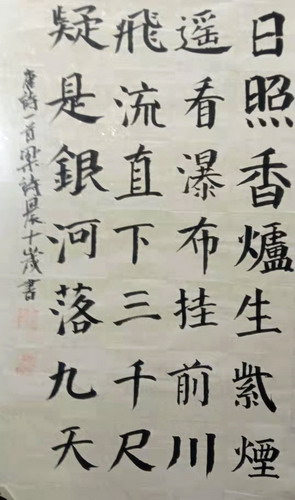 日照香爐生紫煙
遥看瀑布挂前川
飛流直下三千尺
疑是銀河落九天
唐詩一首梁詩晨十歲書